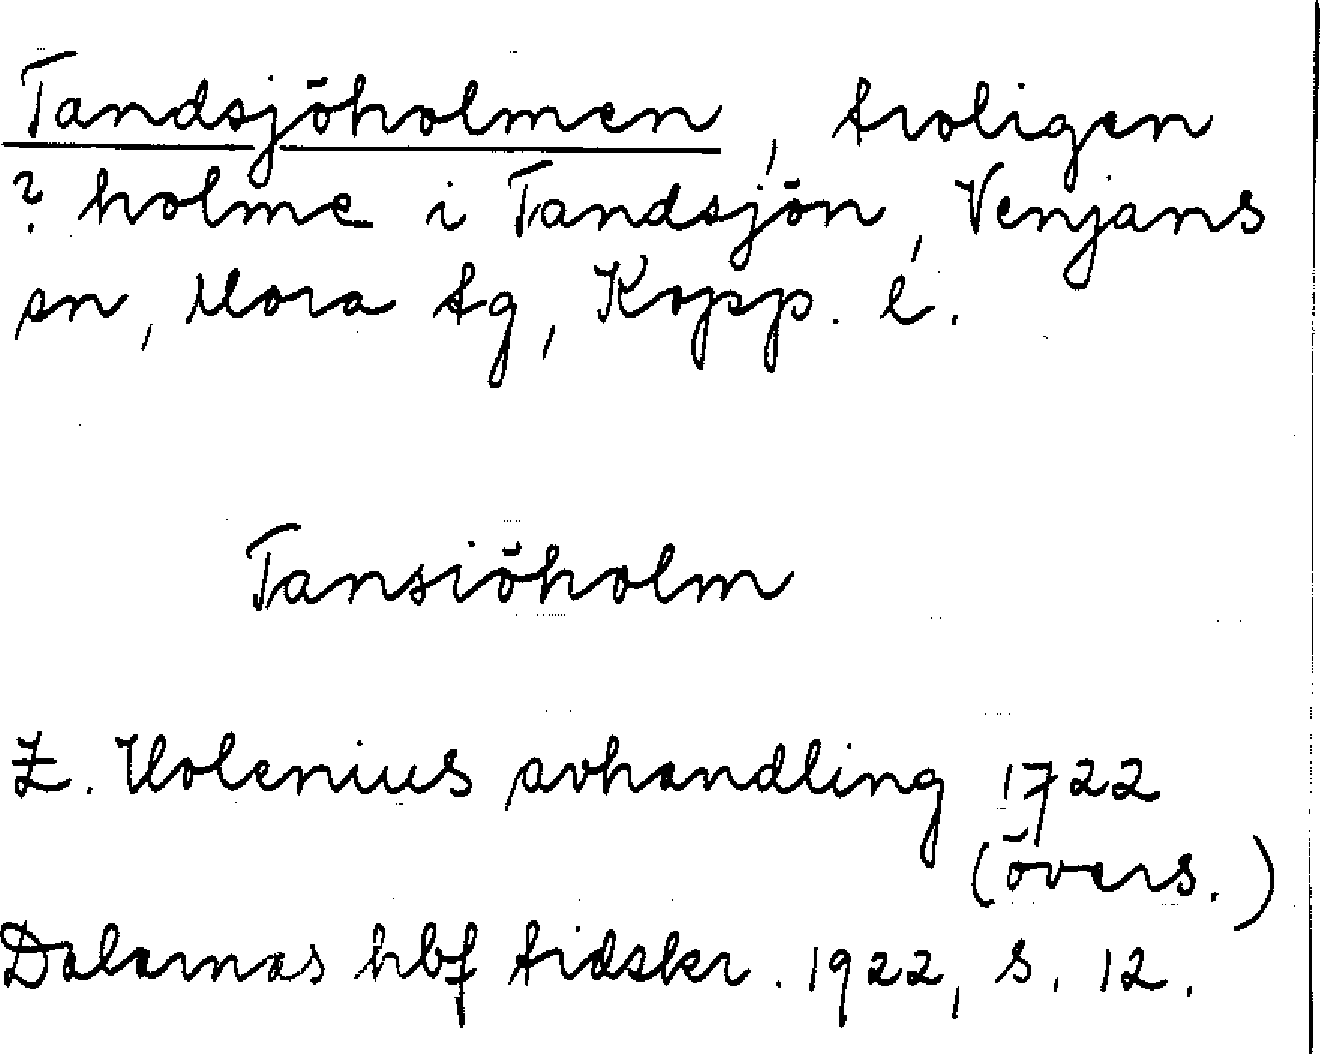 Tandsjöholmen, troligen
? holme i Tandsjön, Venjans
sn, Mora tg, Kopp. l.
Tansiöholm
Z. Holenius avhandling 1722
(övers.)
Dalarnas hbf tidskr. 1922, s. 12.